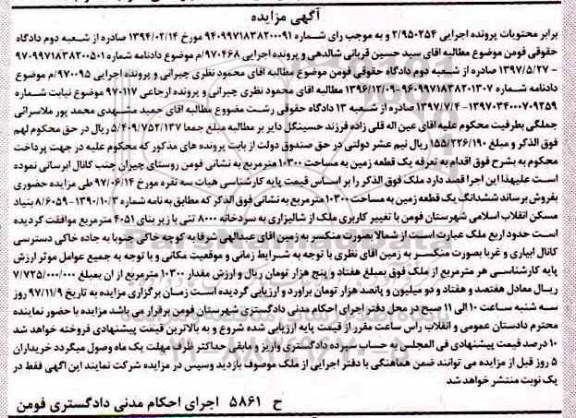 آگهی مزایده
برابر محتویات پرونده اجرایی ۲/۹۵۰۲۵۴ و به موجب رای شماره ۹۴۰۹۹۷۱۸۳۸۲۰۰۰۹۱ مورخ ۱۳۹۴/۰۲/۱۴ صادره از شعبه دوم دادگاه
حقوقی فومن موضوع مطالبه اقای سید حسین قربانی شالدهی و پرونده اجرایی ۹۷۰۴۶۸/م موضوع دادنامه شماره ۹۷۰۹۹۷۱۸۳۸۲۰۰۵۰۱
- ۱۳۹۷/۵/۲۷ صادره از شعبه دوم دادگاه حقوقی فومن موضوع مطالبه اقای محمود نظری چیرانی و پرونده اجرایی ۹۷۰۰۹۵/م موضوع
دادنامه شماره ۹۶۰۹۹۷۱۸۳۸۲۰۱۳۰۷-۱۳۹۶/۱۲/۰۹ مطالبه اقای محمود نظری چیرانی و پرونده ارجاعی ۹۷۰۱۱۷ موضوع نیابت شماره
۱۳۹۷۰۳۴۰۰۰۷۰۹۲۵۹-۱۳۹۷/۷/۴ صادره از شعبه ۱۳ دادگاه حقوقی رشت موضوع مطالبه اقای حمید مشهدی محمد پور ملاسرائی
جملگی بطرفیت محکوم علیه اقای عین اله قلی زاده فرزند حسینگل دایر بر مطالبه مبلغ جمعا ۵/۴۰۹/۷۵۲/۱۳۷ ریال در حق محکوم لهم
فوق الذکر و مبلغ ۱۵۵/۲۲۶/۱۹۰ ریال نیم عشر دولتی در حق صندوق دولت از بابت پرونده های مذکور که محکوم علیه در جهت پرداخت
محکوم به بشرح فوق اقدام به تعرفه یک قطعه زمین به مساحت ۱۰۳۰۰ مترمربع به نشانی فومن روستای چیران جنب کانال ابرسانی نموده
است علیهذا این اجرا قصد دارد ملک فوق الذکر را بر اساس قیمت پایه کارشناسی هیات سه نفره مورخ ۹۷/۰۶/۱۴ طی مزایده حضوری
بفروش برساند ششدانگ یک قطعه زمین به مساحت ۱۰۳۰۰ مترمربع به نشانی فوق الذکر که مطابق به نامه شماره ۸/۶۰۵۹-۱۳۹۰/۱۰/۳ بنیاد
مسکن انقلاب اسلامی شهرستان فومن با تغییر کاربری ملک از شالیزاری به سردخانه ۸۰۰۰ تنی با زیر بنای ۴۰۵۱ مترمربع موافقت گردیده
است حدود اربع ملک عبارت است از شمالا بصورت منکسر به زمین اقای عبدالهی شرقا به کوچه خاکی جنوبا به جاده خاکی دسترسی
کانال ابیاری و غربا بصورت منکسر به زمین اقای نظری با توجه به شرایط زمانی و موقعیت مکانی و با توجه به جمیع عوامل موثر ارزش
پایه کارشناسی هر مترمربع از ملک فوق بمبلغ هفتاد و پنج هزار تومان ریال و ارزش مقدار ۱۰۳۰۰ مترمربع از ان بمبلغ ۷/۷۲۵/۰۰۰/۰۰۰
ریال معادل هفتصد و هفتاد و دو میلیون و پانصد هزار تومان براورد و ارزیابی گردیده است زمان برگزاری مزایده به تاریخ ۹۷/۱۱/۹ روز
سه شنبه ساعت ۱۰ الی ۱۱ صبح در محل دفتر اجرای احکام مدنی دادگستری شهرستان فومن برقرار می باشد مزایده با حضور نماینده
محترم دادستان عمومی و انقلاب راس ساعت مقرر از قیمت پایه ارزیابی شده شروع و به بالاترین قیمت پیشنهادی فروخته خواهد شد
۱۰ درصد قیمت پیشنهادی فی المجلس به حساب سپرده دادگستری واریز و مابقی حداکثر ظرف مهلت یک ماه وصول میگردد خریداران
۵ روز قبل از مزایده می توانند ضمن هماهنگی با دفتر اجرایی از ملک موصوف بازدید وسپس در مزایده شرکت نمایند این اگهی فقط در
یک نوبت منتشر خواهد شد
ح ۵۸۶۱ اجرای احکام مدنی دادگستری فومن